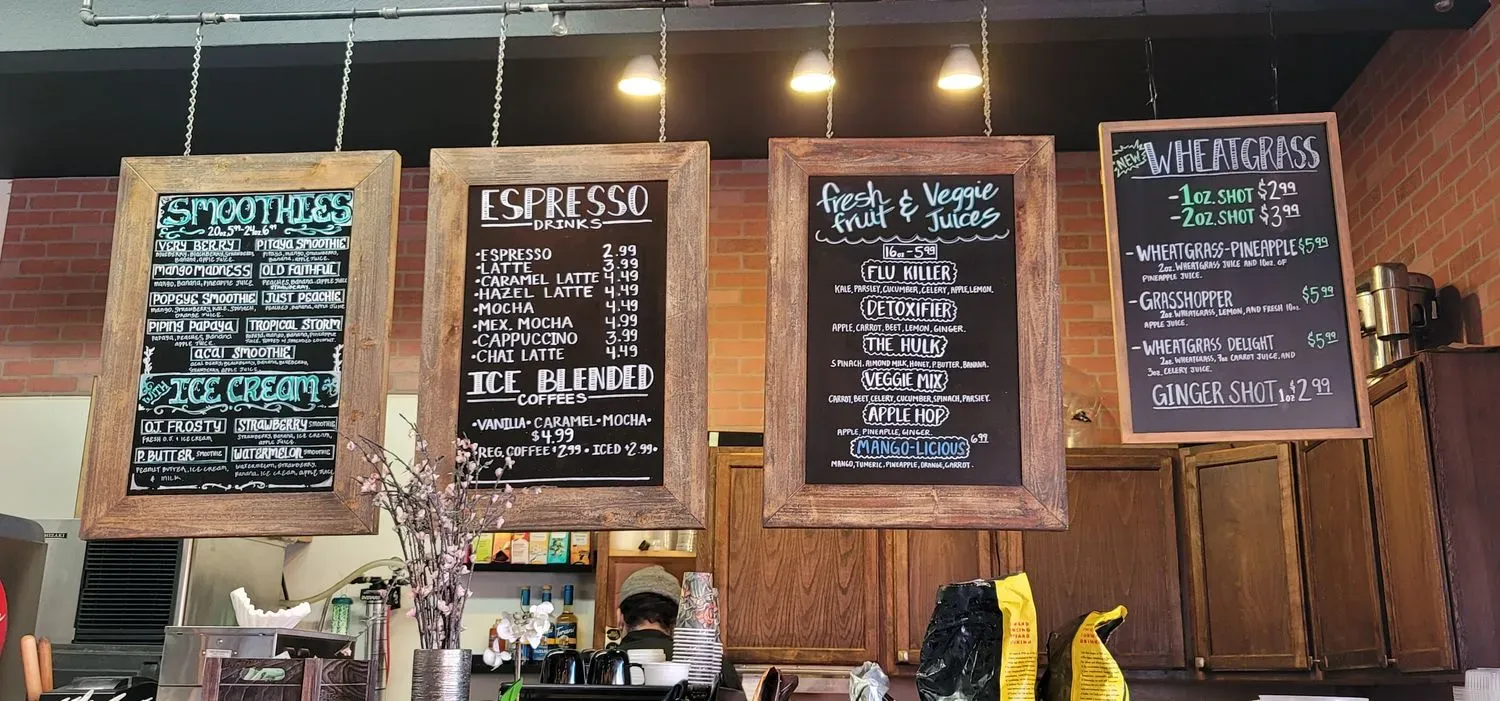 SMOOTHIES
20oz 5.99-24oz.6.99
VERY BERRY
BLUEBERRY, BLACKBERRY, STRAWBERRY,
BANANA, APPLE JUICE.
PITAYA SMOOTHIE
PITAYA, MANGO, STRAWBERRY,
BANANA, APPLE JUICE.
MANGO MADNESS
MANGO, BANANA, PINEAPPLE JUICE
OLD FAITHFUL
PEACHES, BANANA, APPLE JUICE
STRAWBERRY.
POPEYE SMOOTHIE
MANGO, STRAWBERRY, KALE, SPINACH,
ORANGE JUICE.
JUST PEACHIE
PEACHES, BANANA, APPLE JUICE
PIPING PAPAYA
PAPAYA, PEACHES, BANANA,
APPLE JUICE.
TROPICAL STORM
PAPAYA, MANGO, BANANA, PINEAPPLE
JUICE, TOPPED W/ SHREDDED COCONUT.
ACAI SMOOTHIE
ACAI BERRY, BLACKBERRY, BANANA, BLUEBERRY,
STRAWBERRY, APPLE JUICE
WITH ICE CREAM
O.J. FROSTY
FRESH O.J. & ICE CREAM
STRAWBERRY SMOOTHIE
STRAWBERRY, BANANA, ICE CREAM,
APPLE JUICE
P. BUTTER SMOOTHIE
PEANUT BUTTER, ICE CREAM,
& MILK
WATERMELON SMOOTHIE
WATERMELON, STRAWBERRY,
BANANA, ICE CREAM, APPLE JUICE
ESPRESSO
DRINKS
•ESPRESSO 2.99
•LATTE 3.99
•CARAMEL LATTE 4.49
•HAZEL LATTE 4.49
•MOCHA 4.49
•MEX. MOCHA 4.99
•CAPPUCCINO 3.99
•CHAI LATTE 4.49
ICE BLENDED
COFFEES
•VANILLA•CARAMEL•MOCHA•
$4.99
REG. COFFEE $2.99 • ICED $2.99•
fresh & Veggie
fruit Juices
16oz - 5.99
FLU KILLER
KALE, PARSLEY, CUCUMBER, CELERY, APPLE, LEMON.
DETOXIFIER
APPLE, CARROT, BEET, LEMON, GINGER.
THE HULK
SPINACH, ALMOND MILK, HONEY, P.BUTTER, BANANA.
VEGGIE MIX
CARROT, BEET, CELERY, CUCUMBER, SPINACH, PARSLEY.
APPLE HOP
APPLE, PINEAPLE, GINGER.
MANGO-LICIOUS 6.99
MANGO, TUMERIC, PINEAPPLE, ORANGE, CARROT.
NEW WHEATGRASS
-1OZ. SHOT $2.99
-2OZ. SHOT $3.99
-WHEATGRASS-PINEAPPLE $5.99
2OZ. WHEATGRASS JUICE AND 10OZ. OF
PINEAPPLE JUICE.
-GRASSHOPPER $5.99
2OZ. WHEATGRASS, LEMON, AND FRESH 10OZ.
APPLE JUICE.
-WHEATGRASS DELIGHT $5.99
2OZ. WHEATGRASS, 7OZ CARROT JUICE, AND
3OZ. CELERY JUICE.
GINGER SHOT 1oz $2.99